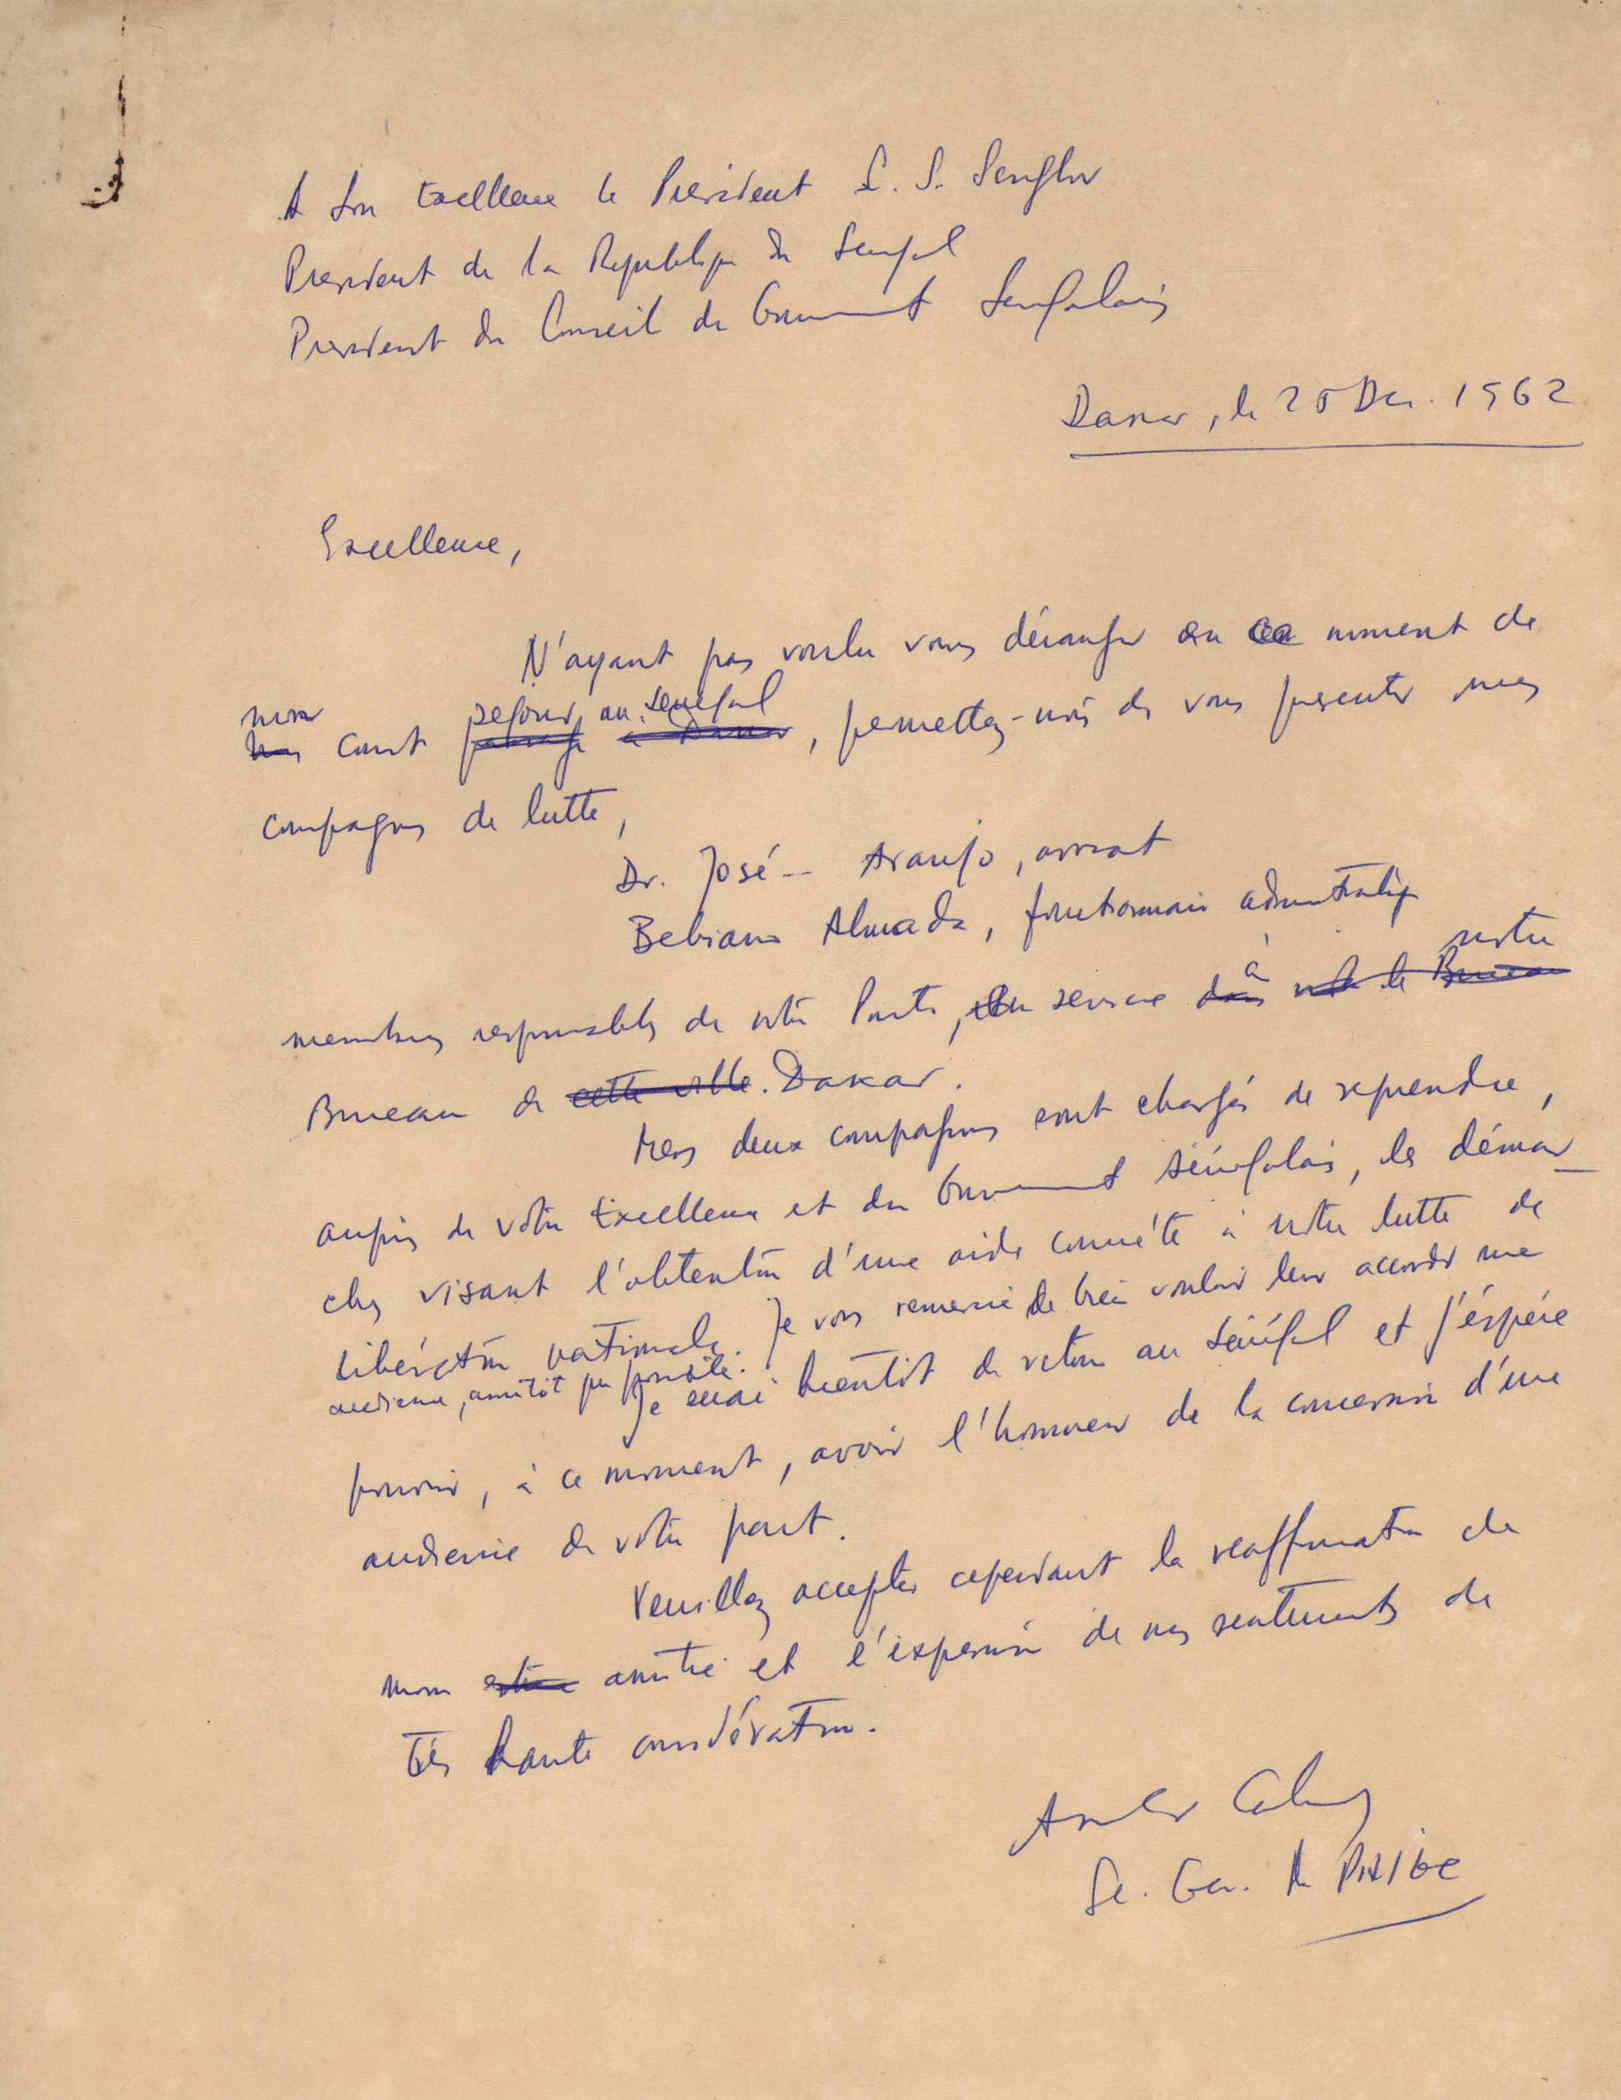 A Son Excellence le President L. S. Senghor
President de la Republique du Senegal
President du Conseil du Gouvernement Senegalais
Dakar, le 20 Dec. 1962
Excellence,
N'ayant pas voulu vous déranger en ce moment de
mon court séjour au Senegal, permettez-moi de vous presenter mes
compagnons de lutte,
Dr. José -- Araujo, avocat
Bebiano Almada, fonctionnaire administratif
membres responsables de notre Parti, en service à notre
Bureau de Dakar.
Mes deux compagnons sont chargés de reprendre,
auprès de votre Excellence et du Gouvernement sénégalais, les démar-
ches visant l'obtention d'une aide concrète à notre lutte de
libération nationale. Je vous remercie de bien vouloir leur accorder une
audience, aussitôt que possible. Je serai bientôt de retour au Sénégal et j'éspére
pouvoir, à ce moment, avoir l'honneur de la concession d'une
audience de votre part.
Veuillez accepter cependant la reaffirmation de
mon amitié et l'expression de mes sentiments de
très haute considération.
Amilcar Cabral
Se. Gen. du PAIGC